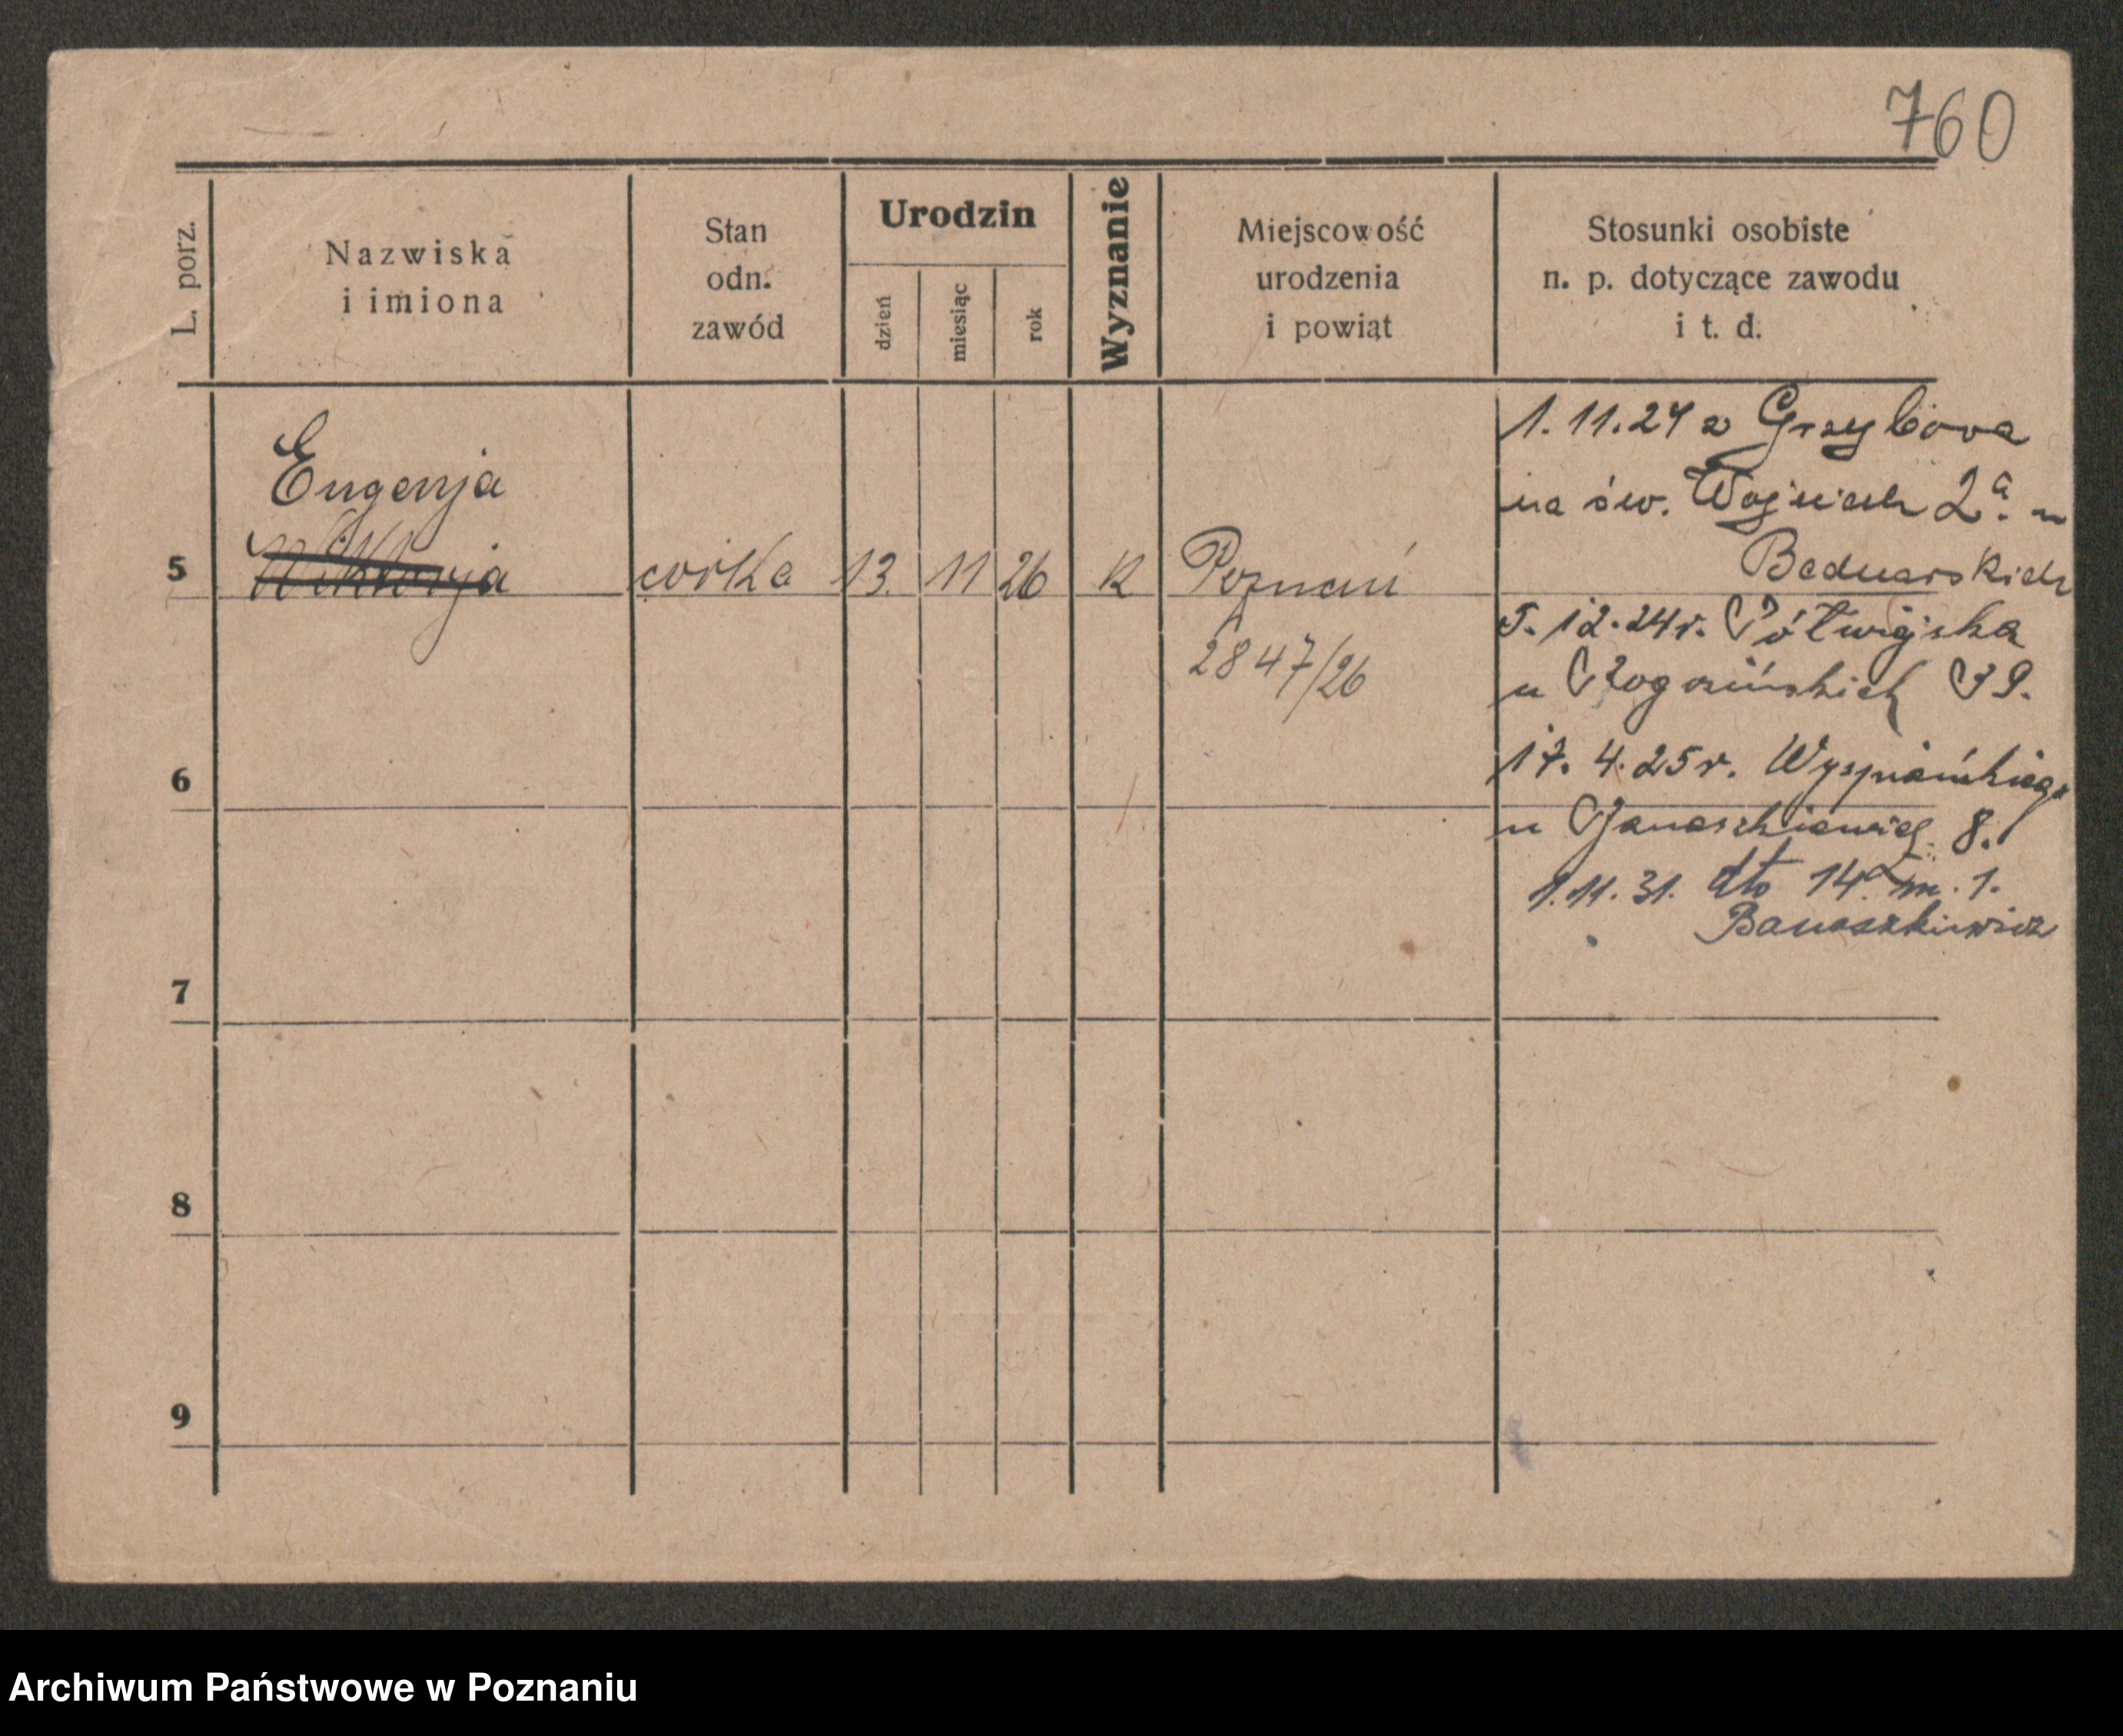 760
L. porz.
Nazwiska
i imiona
Stan
odn.
zawód
Urodzin
dzień
miesiąc
rok
Wyznanie
Miejscowość
urodzenia
i powiąt
Stosunki osobiste
n. p. dotyczące zawodu
i t. d.
Eugenja
5 Wiktorja córka 13. 11 26 K Poznań
2847/26
1.11.24 z Grzybowa
na św. Wojciech 2a. u
Bednarskich
5. 12.24r. Półwiejska
u Rogozińskich 39.
17. 4.25r. Wyspiańskiego
u Banaszkiewicz 8.
1.11.31. dto 14a m. 1.
Banaszkiewicz
6
7
8
9
Archiwum Państwowe w Poznaniu